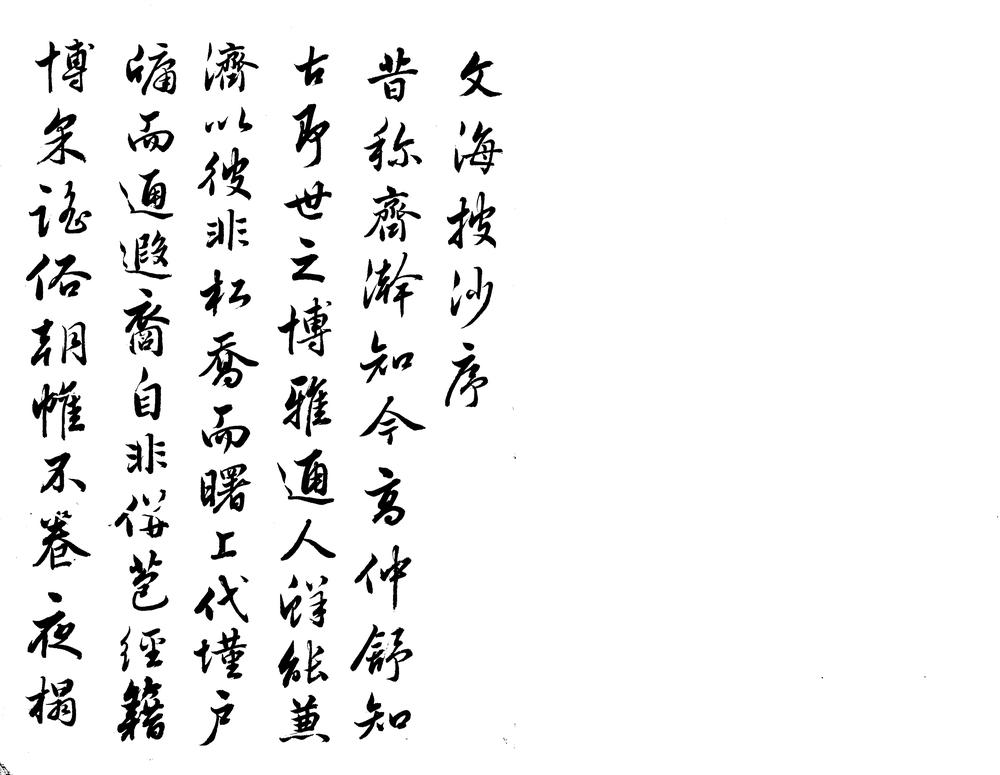 文海披沙序
昔称齊澣知今高仲舒知
古即世之博雅通人鮮能兼
濟以彼非松喬而曙上代墐戶
牖而通遐裔自非併苞經籍
博采謠俗朝帷不卷夜榻